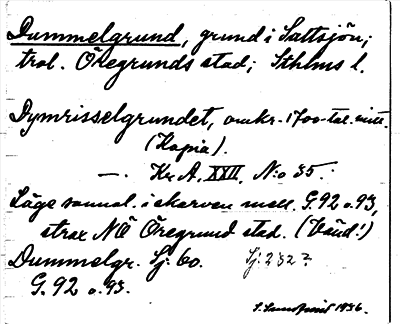 Dummelgrund, grund i Saltsjön;
trol. Öregrunds stad; Sthlms l.
Dymrisselgrundet, omkr. 1700-tal. mitt.
(Kopia).
—. Kr. A. XXII, N:o 35.
Läge sannol. i skarven mell. G. 92 o. 93,
strax NÖ Öregrund stad. (Vänd!)
Dummelgr. Sj. 60. Sj: 232?
G. 92 o. 93.
1936.